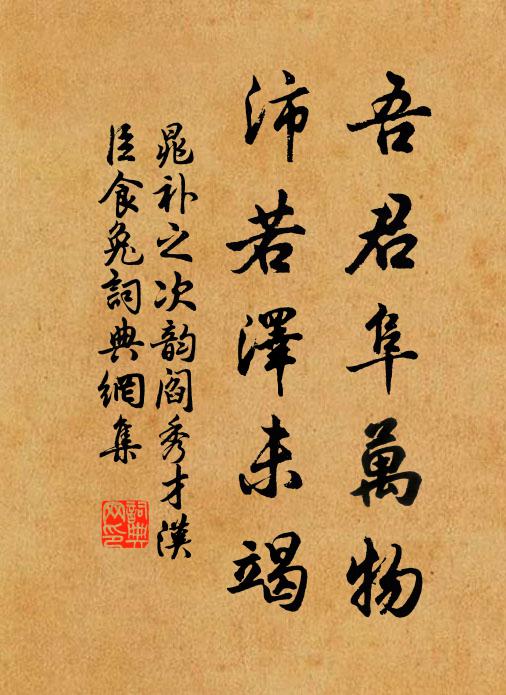 吾君阜萬物
沛若澤未竭
晁补之次韵閻秀才漢
臣食兔詞典網集
詞典网印